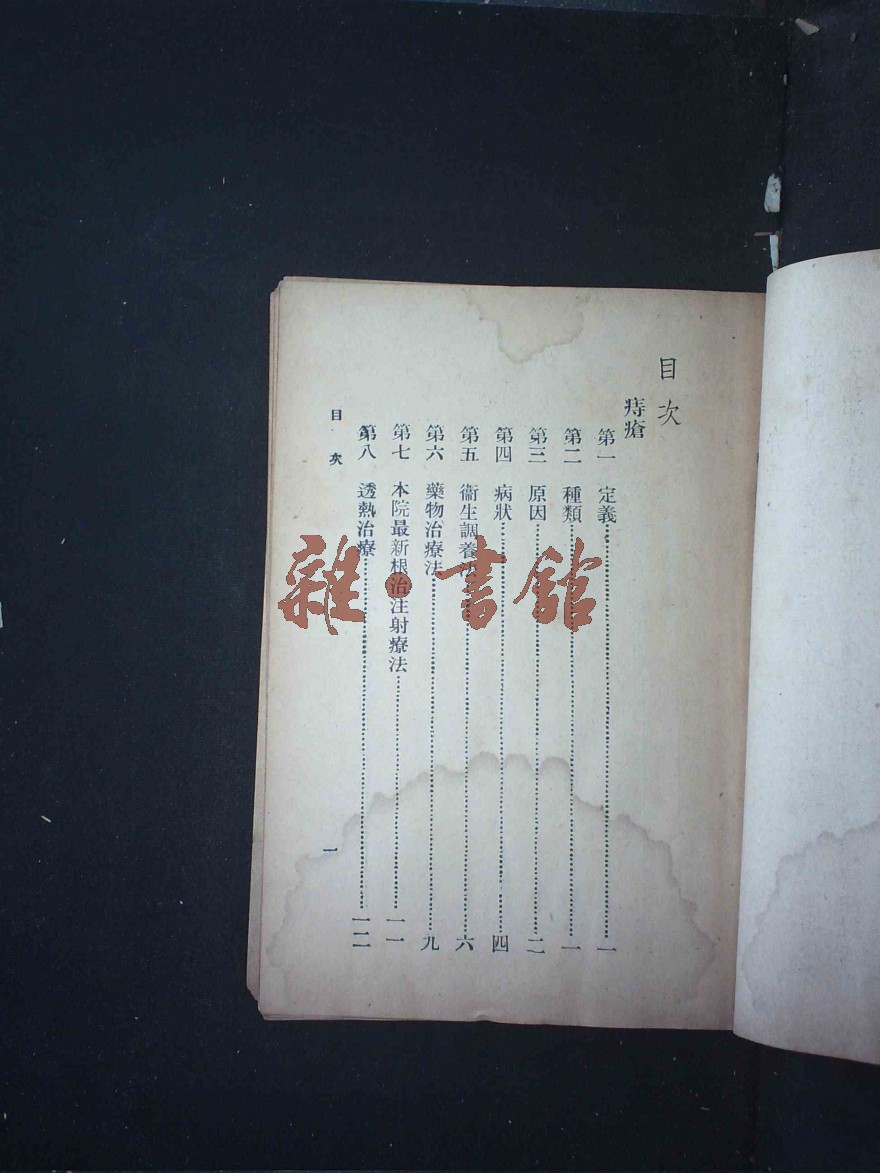 目次
痔瘡
第一 定義……一
第二 種類……一
第三 原因……二
第四 病狀……四
第五 衞生調養法……六
第六 藥物治療法……九
第七 本院最新根治注射療法……一一
第八 透熱治療……一二
目次
一
雜·書館